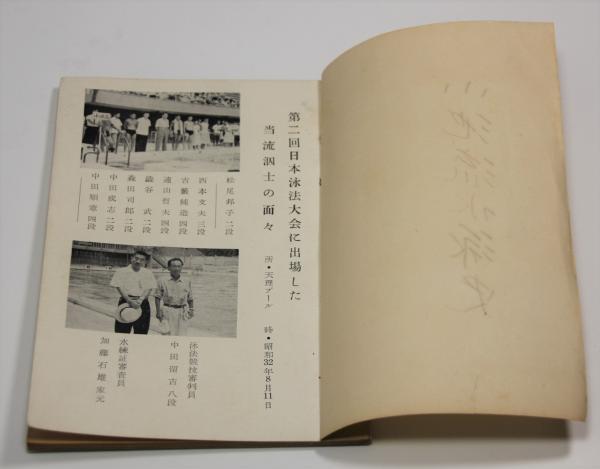 第二回日本泳法大会に出場した
当流泅士の面々
所・天理プール 時・昭和32年8月11日
松尾邦子二段
西本文夫三段
古藪純造四段
遠山哲夫四段
澁谷 武二段
森田司郎二段
中田成志二段
中田順章四段
泳法競技審判員
中田留吉八段
水練証審査員
加藤石雄家元